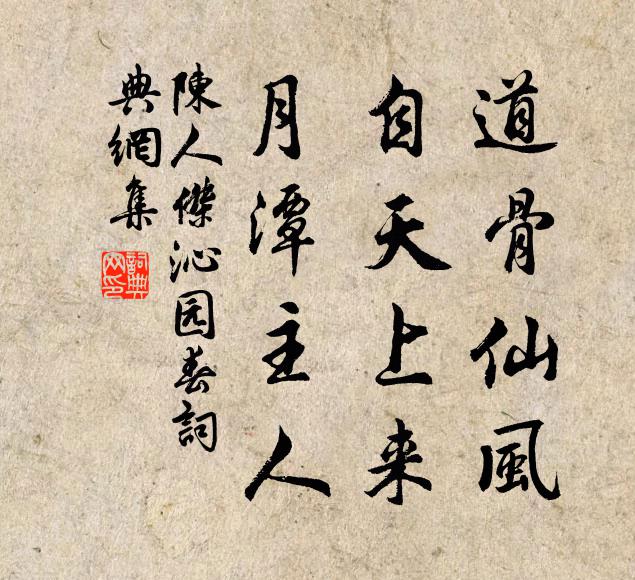 道骨仙風
自天上来
月潭主人
陳人傑沁园春詞
典網集
詞典网印